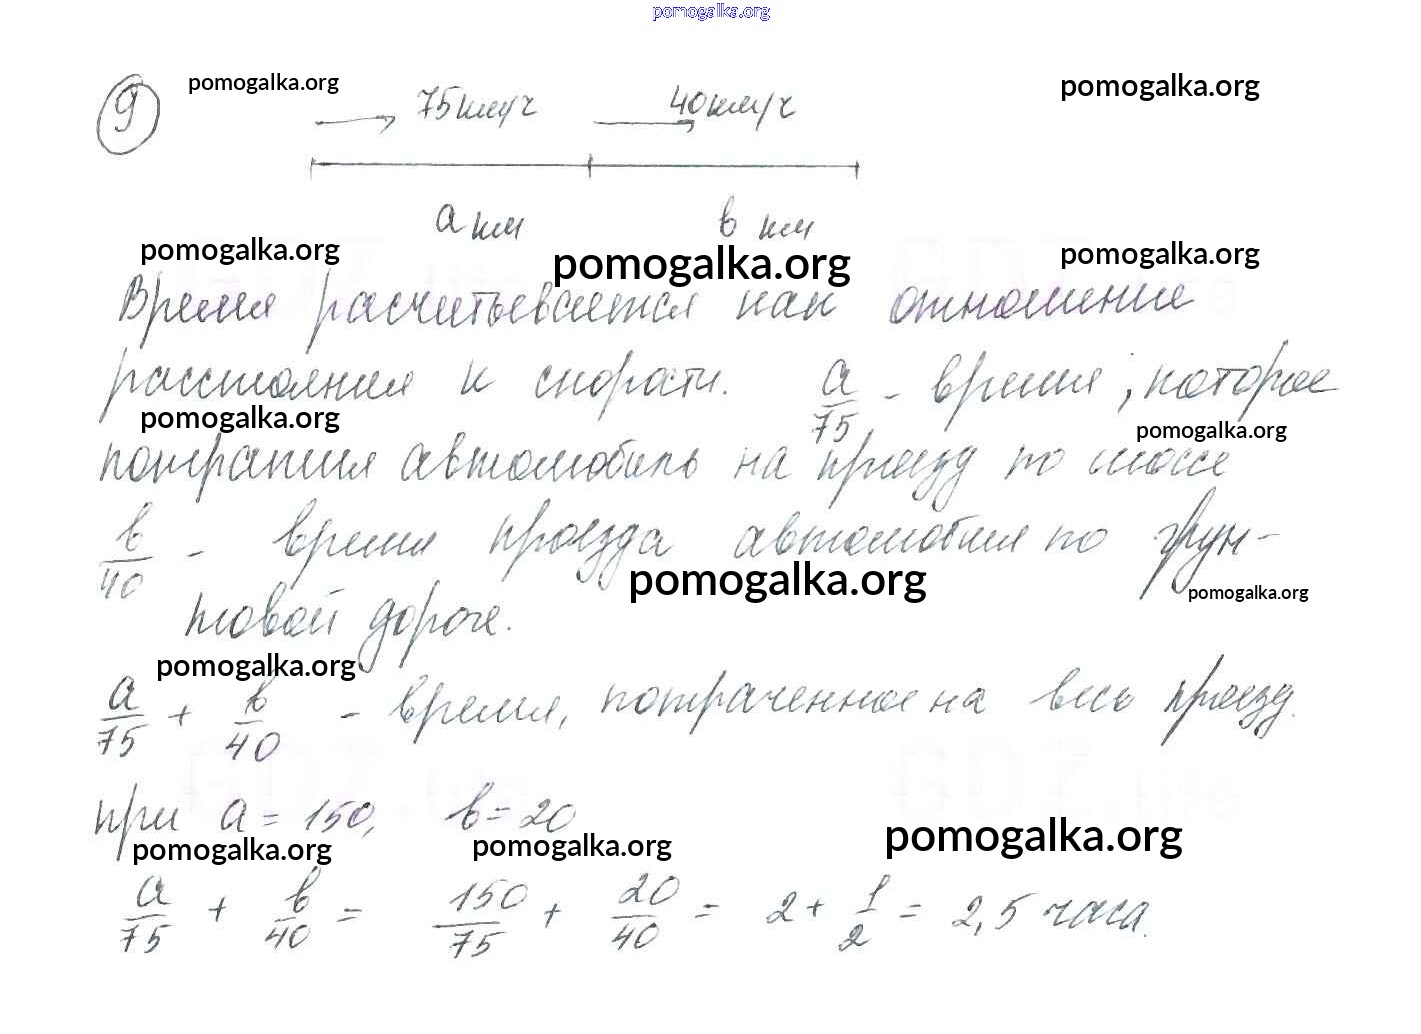 pomogalka.org
9 75 км/ч 40 км/ч
pomogalka.org pomogalka.org
а км в км
pomogalka.org pomogalka.org pomogalka.org
Время расчитывается как отношение
расстояния к скорости. а/75 - время, которое
pomogalka.org pomogalka.org
потратил автомобиль на проезд по шоссе
в/40 - время проезда автомобиля по грун-
pomogalka.org pomogalka.org
товой дороге.
pomogalka.org
а/75 + в/40 - время, потраченное на весь проезд.
при а = 150, в = 20
pomogalka.org pomogalka.org pomogalka.org
а/75 + в/40 = 150/75 + 20/40 = 2 + 1/2 = 2,5 часа.